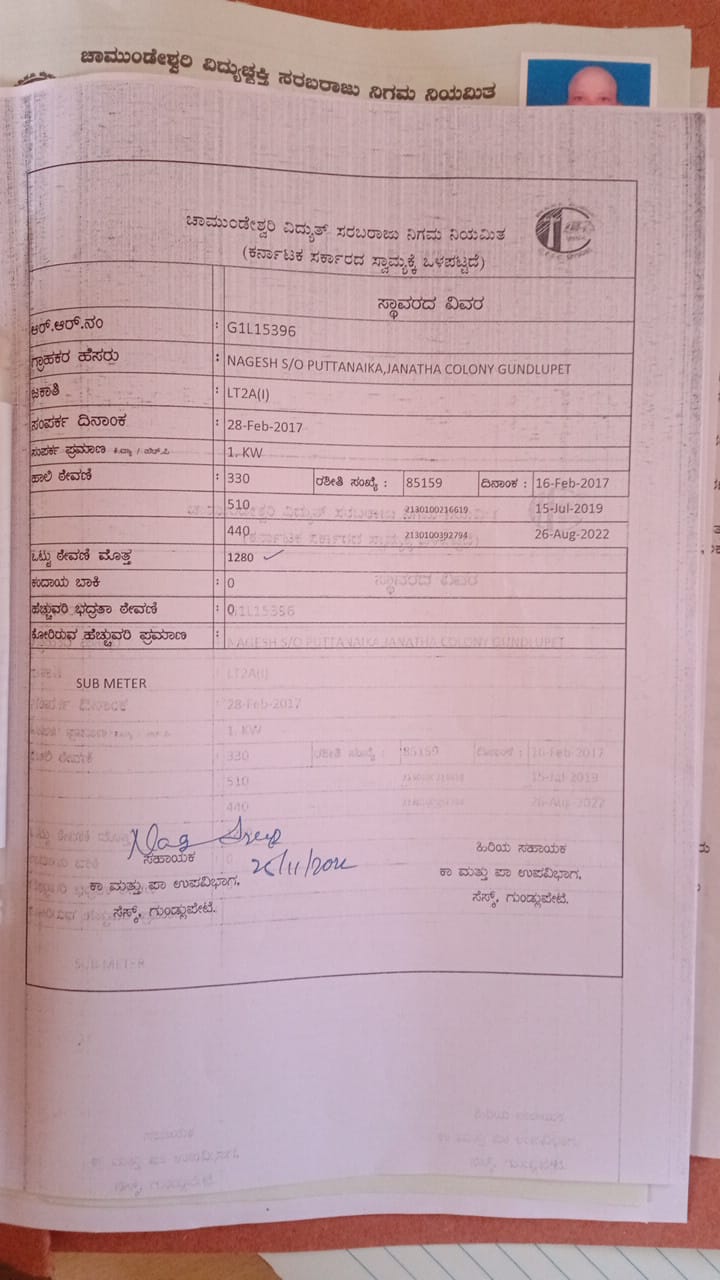 ಚಾಮುಂಡೇಶ್ವರಿ ವಿದ್ಯುಚ್ಛಕ್ತಿ ಸರಬರಾಜು ನಿಗಮ ನಿಯಮಿತ
ಚಾಮುಂಡೇಶ್ವರಿ ವಿದ್ಯುತ್ ಸರಬರಾಜು ನಿಗಮ ನಿಯಮಿತ
(ಕರ್ನಾಟಕ ಸರ್ಕಾರದ ಸ್ವಾಮ್ಯಕ್ಕೆ ಒಳಪಟ್ಟದೆ)
ಸ್ಥಾವರದ ವಿವರ
ಆರ್.ಆರ್.ನಂ : G1L15396
ಗ್ರಾಹಕರ ಹೆಸರು : NAGESH S/O PUTTANAIKA,JANATHA COLONY GUNDLUPET
ಜಕಾತಿ : LT2A(I)
ಸಂಪರ್ಕ ದಿನಾಂಕ : 28-Feb-2017
ಸಂಪರ್ಕ ಪ್ರಮಾಣ ಕಿ.ವ್ಯಾ / ಹೆಚ್.ಪಿ : 1. KW
ಹಾಲಿ ಠೇವಣಿ : 330 ರಶೀತಿ ಸಂಖ್ಯೆ : 85159 ದಿನಾಂಕ : 16-Feb-2017
510 2130100216619 15-Jul-2019
440 2130100392794 26-Aug-2022
ಒಟ್ಟು ಠೇವಣಿ ಮೊತ್ತ : 1280
ಕಂದಾಯ ಬಾಕಿ : 0
ಹೆಚ್ಚುವರಿ ಭದ್ರತಾ ಠೇವಣಿ : 0
ಕೋರಿರುವ ಹೆಚ್ಚುವರಿ ಪ್ರಮಾಣ :
SUB METER
ಸಹಾಯಕ ಹಿರಿಯ ಸಹಾಯಕ
ಕಾ ಮತ್ತು ಪಾ ಉಪವಿಭಾಗ, ಕಾ ಮತ್ತು ಪಾ ಉಪವಿಭಾಗ,
ಸೆಸ್ಕ್, ಗುಂಡ್ಲುಪೇಟೆ. ಸೆಸ್ಕ್, ಗುಂಡ್ಲುಪೇಟೆ.